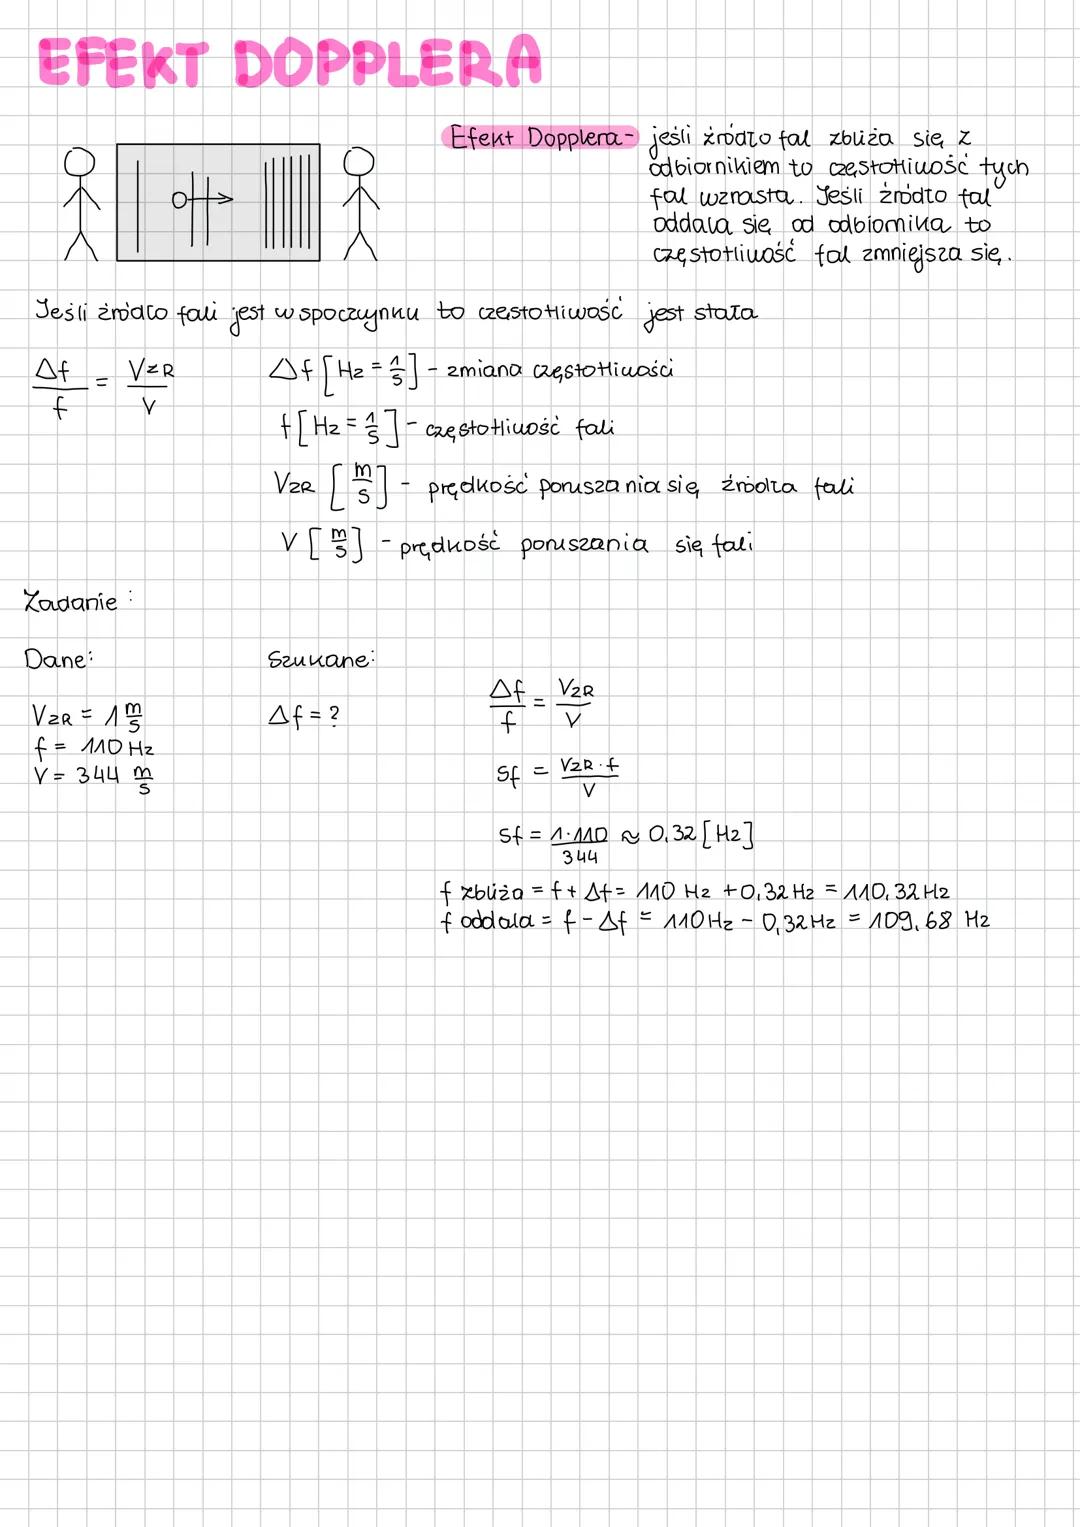 EFEKT DOPPLERA
Efekt Dopplera - jeśli źródło fal zbliża się z
odbiornikiem to częstotliwość tych
fal wzrasta. Jeśli źródło fal
oddala się od odbiornika to
częstotliwość fal zmniejsza się.
Jeśli źródło fali jest w spoczynku to częstotliwość jest stała
Δf/f = VŹR/V
Δf [Hz = 1/s] - zmiana częstotliwości
f [Hz = 1/s] - częstotliwość fali
VŹR [m/s] - prędkość poruszania się źródła fali
V [m/s] - prędkość poruszania się fali
Zadanie:
Dane:
VŹR = 1 m/s
f = 110 Hz
V = 344 m/s
Szukane:
Δf = ?
Δf/f = VŹR/V
Sf = VŹR · f/V
Sf = 1·110/344 ≈ 0,32 [Hz]
f zbliża = f + Δf = 110 Hz + 0,32 Hz = 110,32 Hz
f oddala = f - Δf = 110 Hz - 0,32 Hz = 109,68 Hz